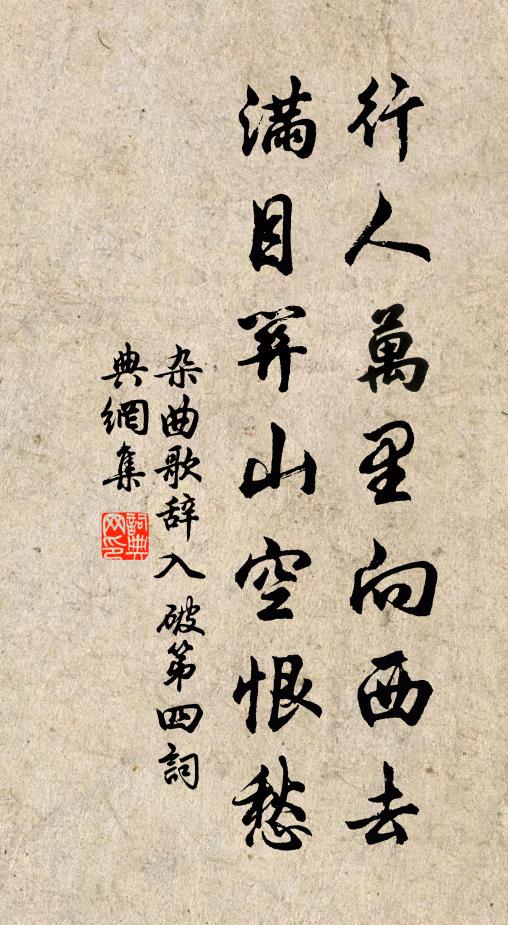 行人萬里向西去
滿目關山空恨愁
杂曲歌辞入破第四詞
典網集
詞典
网印